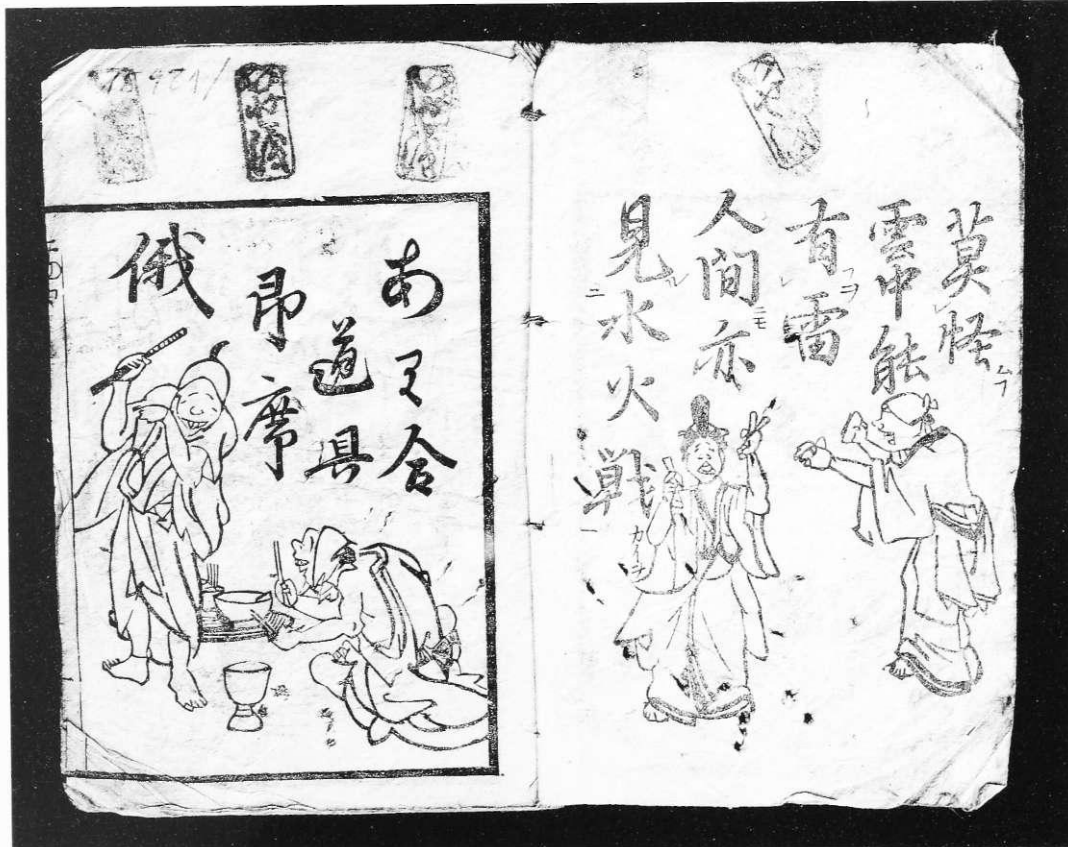 莫怪
雲中能
有雷
人間ニモ亦
見二水火戦一
あり合
道具
即席
俄